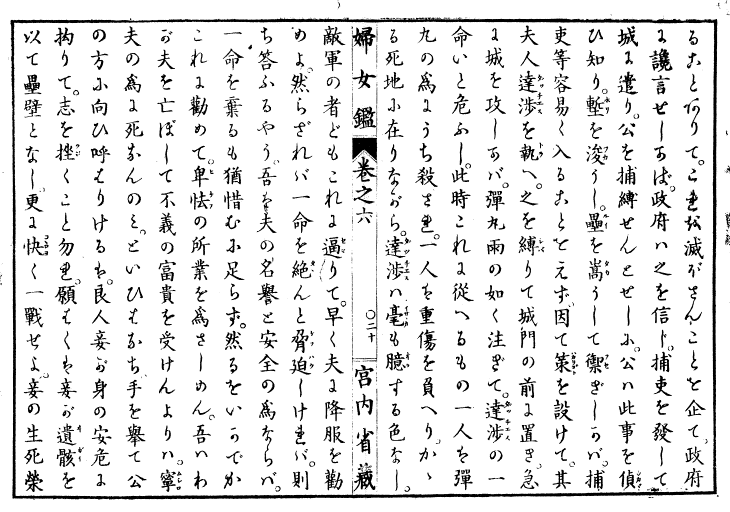 ることありて。これを滅ぼさんことを企て、政府
に讒言せしかば。政府ハ之を信じ。捕吏を發して
城に遣り。公を捕縛せんとせしに。公ハ此事を偵
ひ知り。塹を浚うし。壘を嵩うして禦ぎしかバ。捕
吏等容易く入ることをえず。因て策を設けて。其
夫人達渉を執へ。之を縛りて城門の前に置き。急
に城を攻しかバ。彈丸雨の如く注ぎて。達渉の一
命いと危ふし。此時これに從へるもの一人を彈
丸の爲にうち殺され。一人も重傷を負へり。かゝ
る死地に在りながら。達渉ハ毫も臆する色なし。
婦女鑑 卷之六 〇二十 宮内省藏
敵軍の者どもこれに逼りて。早く夫に降服を勸
めよ。然らざれバ一命を絶んと脅迫しけれバ。則
ち答ふるやう。吾を夫の名譽と安全の爲ならバ。
一命を棄るも猶惜むに足らず。然るをいかでか
これに勸めて。卑怯の所業を爲さしめん。吾ハわ
が夫を亡ぼして不義の富貴を受けんよりハ。寧
夫の爲に死なんのミ。といひもなち手を擧て公
の方に向ひ呼もりけるも。良人妾が身の安危に
拘りて。志を挫くこと勿れ。願もくも妾が遺骸を
以て壘壁となし。更に快く一戰せよ。妾の生死榮